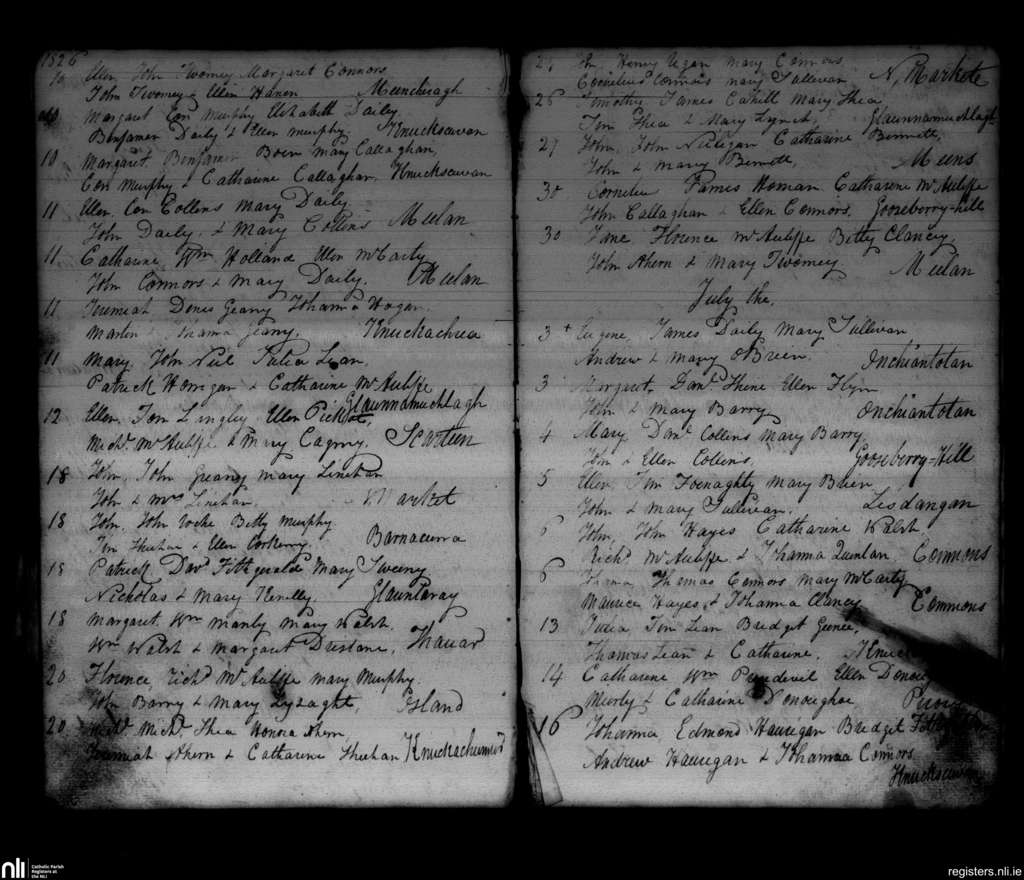 1826
10 Ellen, John Twomey Margaret Connors
John Twomey & Ellen Hanon Meencheagh
Margaret Con Murphy Elizabeth Daily
Benjamen Daily & Ellen Murphy. Knucksuvan
10 Margaret, Benjamen Boen Mary Callaghan,
Con Murphy & Catharine Callaghan. Knucksuvan
11 Ellen, Con Collins Mary Daily
John Daily. & Mary Collins Meelan
11 Catharine, Wm Holland Ellen McCarty
John Connors & Mary Daily. Meelan
11 Jeremiah Denis Geany Johanna Hogan.
Martin & Johanna Geany. Knuckachea
11 Mary, John Neil Lean
Patrick Horrigan & Catharine McAuliffe
Glaunnamuchlagh
12 Ellen. Tom Lingley Ellen
Michl. McAuliffe. & Mary Scarteen
18 John, John Greany Mary Linehan
John & Mrs Linehan. Market
18 John, John Betty Murphy.
Tim Sheehan & Ellen Corkerry. Barnacurra
18 Patrick Davd. Fitzgerald Mary Sweeny
Nicholas & Mary Glauntaray
18 Margaret, Wm Manly Mary Walsh.
Wm Walsh & Margaret
20 Florence, Richd. McAuliffe Mary Murphy.
John Barry & Mary Lysaght, Island
20 Michl. Shea Honora Ahern,
Jeremiah Ahern & Catharine Sheehan
Henry Regan Mary Connors
Cornelius Connors Mary Sullivan N. Markete
26 Timothy James Cahill Mary Shea
Tim Shea & Mary Lynch, Glaunnamuchlagh
27 John, John Catharine Bennett,
John & Mary Bennett, Meens
30 Cornelius James Homan. Catharine McAuliffe
John Callaghan & Ellen Connors. Gooseberry-hill
30 Jane, Florence McAuliffe Betty Clancy,
John Ahern & Mary Twomey. Meelan
July the.
3 Eugene, James Daily Mary Sullivan
Andrew & Mary OBrien. Inchiantotan
3 Margaret, Danl. Shine Ellen Flyn
John & Mary Barry Onchiantotan
4 Mary Danl. Collins Mary Barry,
John & Ellen Collins, Gooseberry=Hill
5 Ellen, Tim Foenaghty Mary Brien,
John & Mary Sullivan. Lisdangan
6 John, John Hayes Catharine Walsh
Richd. McAuliffe & Johanna Quinlan Commons
6 Thomas Connors Mary McCarty
Maurice Hayes, & Johanna Clancy Commons
13 Julia Tim Lean Bridget
Thomas Lean & Catharine.
14 Catharine Wm Ellen
& Catharine Donoughoe
16 Johanna, Edmond Haurigan Bridget
Andrew Haurigan & Johanna Connors
Knucksuvan
nli
Catholic Parish
Registers at
the NLI
registers.nli.ie